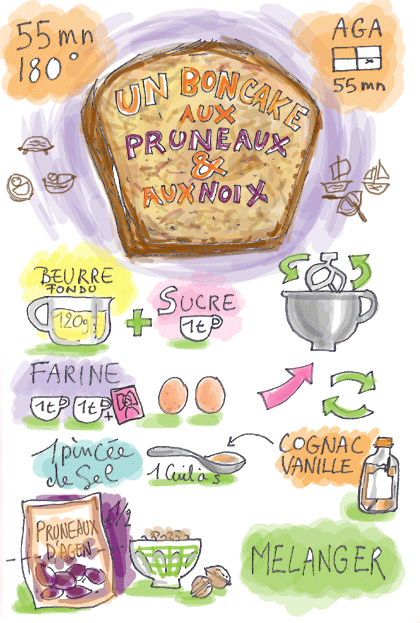 55 mn
180°
AGA
55 mn
UN BON CAKE
AUX
PRUNEAUX
&
AUX NOIX
BEURRE
FONDU
120g
+
SUCRE
1t
FARINE
1t 1t +
1 pincée
de Sel
1 Cuil à s
COGNAC
VANILLE
PRUNEAUX
D'AGEN
1/2
MELANGER